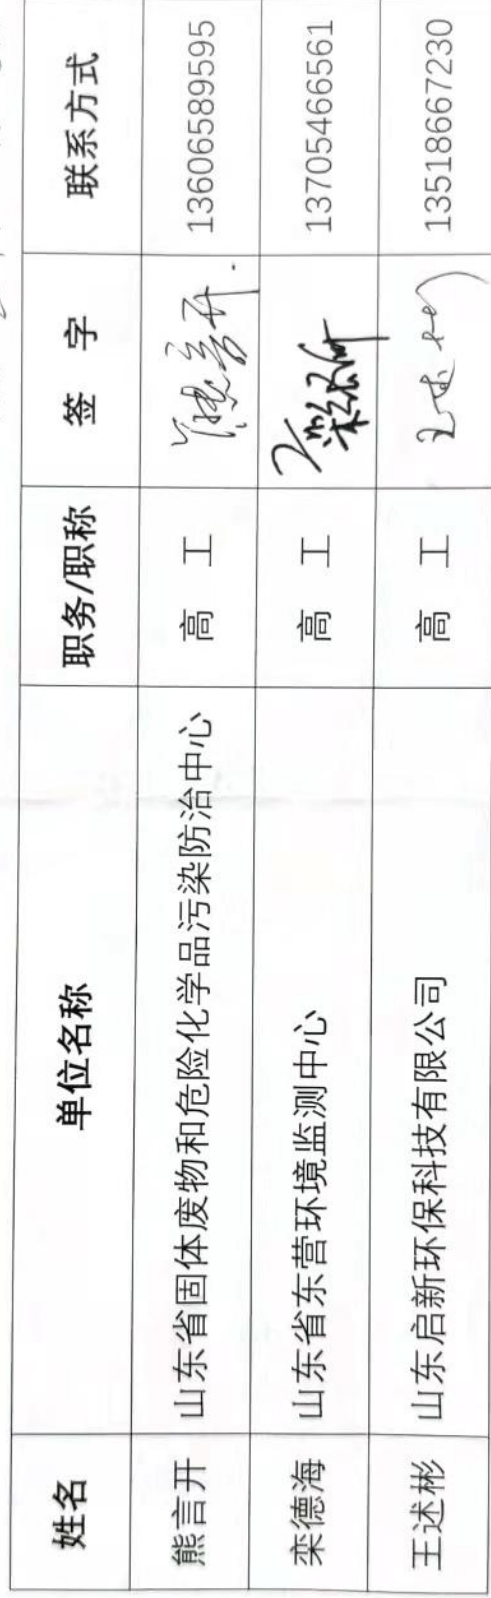 姓名 单位名称 职务/职称 签 字 联系方式
熊言开 山东省固体废物和危险化学品污染防治中心 高 工 熊言开 13606589595
栾德海 山东省东营环境监测中心 高 工 13705466561
王述彬 山东启新环保科技有限公司 高 工 王述彬 13518667230